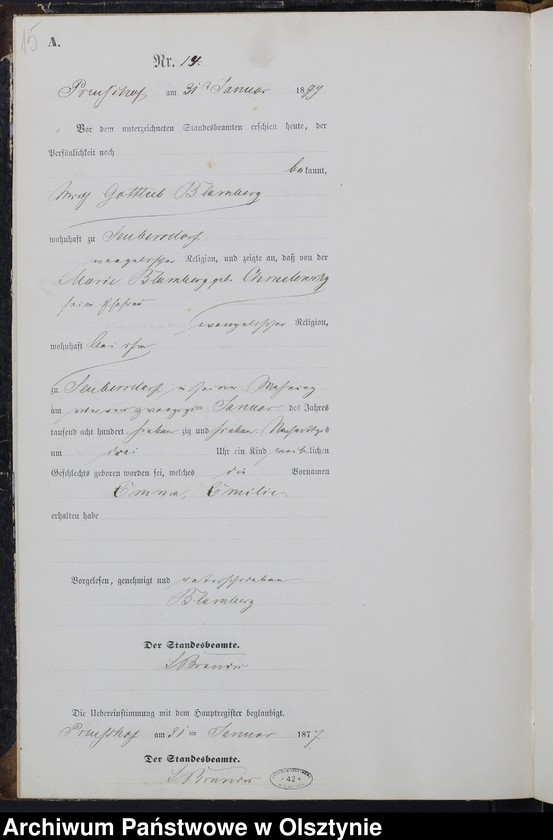 15
A.
Nr. 14.
Preußhof am 31 Januar 1877
Vor dem unterzeichneten Standesbeamten erschien heute, der
Persönlichkeit nach
bekannt,
Gottlieb Blumberg
wohnhaft zu Seubersdorf
evangelischer Religion, und zeigte an, daß von der
Marie Blumberg geb. Chmielewitz
seiner Ehefrau
evangelischer Religion,
wohnhaft bei ihm
zu Seubersdorf in seiner Wohnung
am vier und zwanzigsten Januar des Jahres
tausend acht hundert sieben zig und sieben Nachmittags
um drei Uhr ein Kind weiblichen
Geschlechts geboren worden sei, welches die Vornamen
Emma, Emilie
erhalten habe
Vorgelesen, genehmigt und unterschrieben
Blumberg
Der Standesbeamte.
Die Uebereinstimmung mit dem Hauptregister beglaubigt.
Preußhof am 31 Januar 1877
Der Standesbeamte.
42
Archiwum Państwowe w Olsztynie